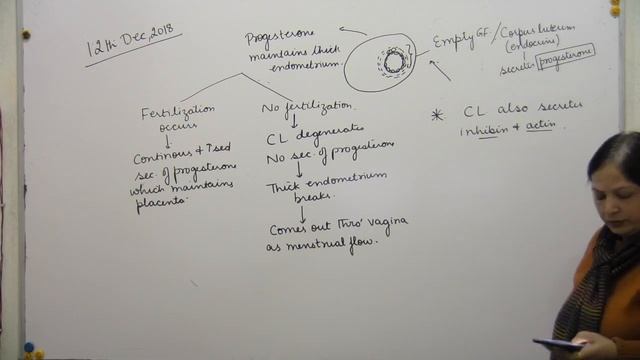 12th Dec, 2018
Progesterone
maintains thick
endometrium.
Empty GF / Corpus luteum
(endocrine)
secretes progesterone
* CL also secretes
inhibin & actin.
Fertilization
occurs
Continous & ↑sed
sec. of progesterone
which maintains
placenta.
No fertilization
CL degenerates
No sec. of progesterone
Thick endometrium
breaks.
Comes out thro' vagina
as menstrual flow.